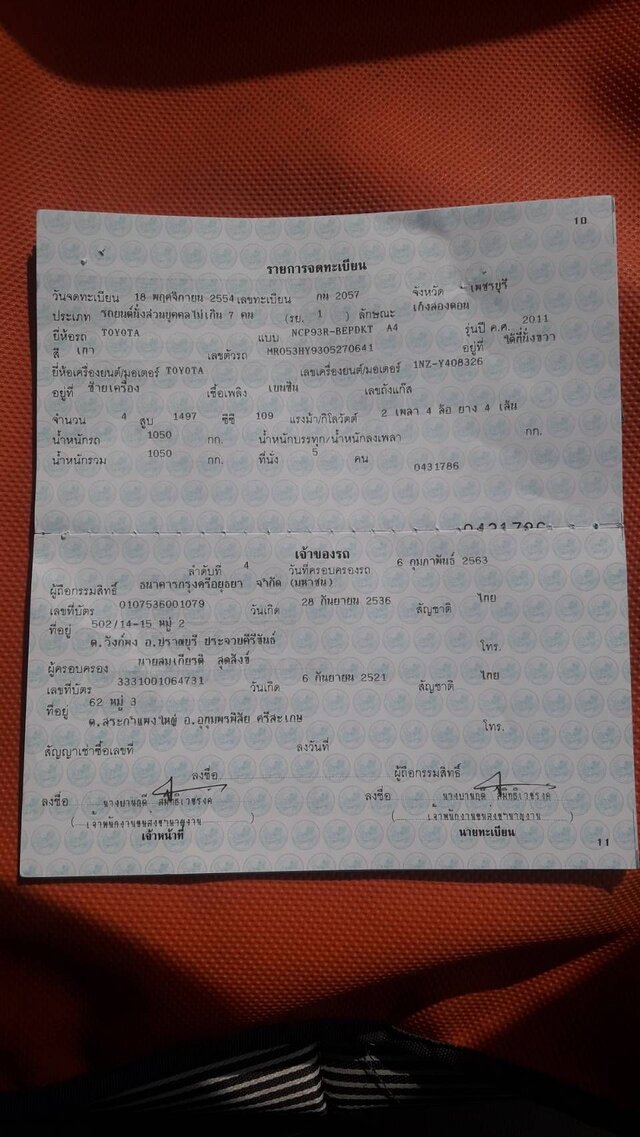 10
รายการจดทะเบียน
วันจดทะเบียน 18 พฤศจิกายน 2554 เลขทะเบียน กน 2057 จังหวัด เพชรบุรี
ประเภท รถยนต์นั่งส่วนบุคคลไม่เกิน 7 คน (รย. 1 ) ลักษณะ เก๋งสองตอน
ยี่ห้อรถ TOYOTA แบบ NCP93R-BEPDKT A4 รุ่นปี ค.ศ. 2011
สี เทา เลขตัวรถ MR053HY9305270641 อยู่ที่ ใต้ที่นั่งขวา
ยี่ห้อเครื่องยนต์/มอเตอร์ TOYOTA เลขเครื่องยนต์/มอเตอร์ 1NZ-Y408326
อยู่ที่ ซ้ายเครื่อง เชื้อเพลิง เบนซิน เลขถังแก๊ส
จำนวน 4 สูบ 1497 ซีซี 109 แรงม้า/กิโลวัตต์ 2 เพลา 4 ล้อ ยาง 4 เส้น
น้ำหนักรถ 1050 กก. น้ำหนักบรรทุก/น้ำหนักลงเพลา กก.
น้ำหนักรวม 1050 กก. ที่นั่ง 5 คน
0431786
0431786
เจ้าของรถ
ลำดับที่ 4 วันที่ครอบครองรถ 6 กุมภาพันธ์ 2563
ผู้ถือกรรมสิทธิ์ ธนาคารกรุงศรีอยุธยา จำกัด (มหาชน)
เลขที่บัตร 0107536001079 วันเกิด 28 กันยายน 2536 สัญชาติ ไทย
ที่อยู่ 502/14-15 หมู่ 2
ต.วังก์พง อ.ปราณบุรี ประจวบคีรีขันธ์ โทร.
ผู้ครอบครอง นายสมเกียรติ สุดสังข์
เลขที่บัตร 3331001064731 วันเกิด 6 กันยายน 2521 สัญชาติ ไทย
ที่อยู่ 62 หมู่ 3
ต.สระกำแพงใหญ่ อ.อุทุมพรพิสัย ศรีสะเกษ โทร.
สัญญาเช่าซื้อเลขที่ ลงวันที่
ลงชื่อ ผู้ถือกรรมสิทธิ์
ลงชื่อ ลงชื่อ
( เจ้าพนักงานขนส่งชำนาญงาน ) ( เจ้าพนักงานขนส่งชำนาญงาน )
เจ้าหน้าที่ นายทะเบียน
11